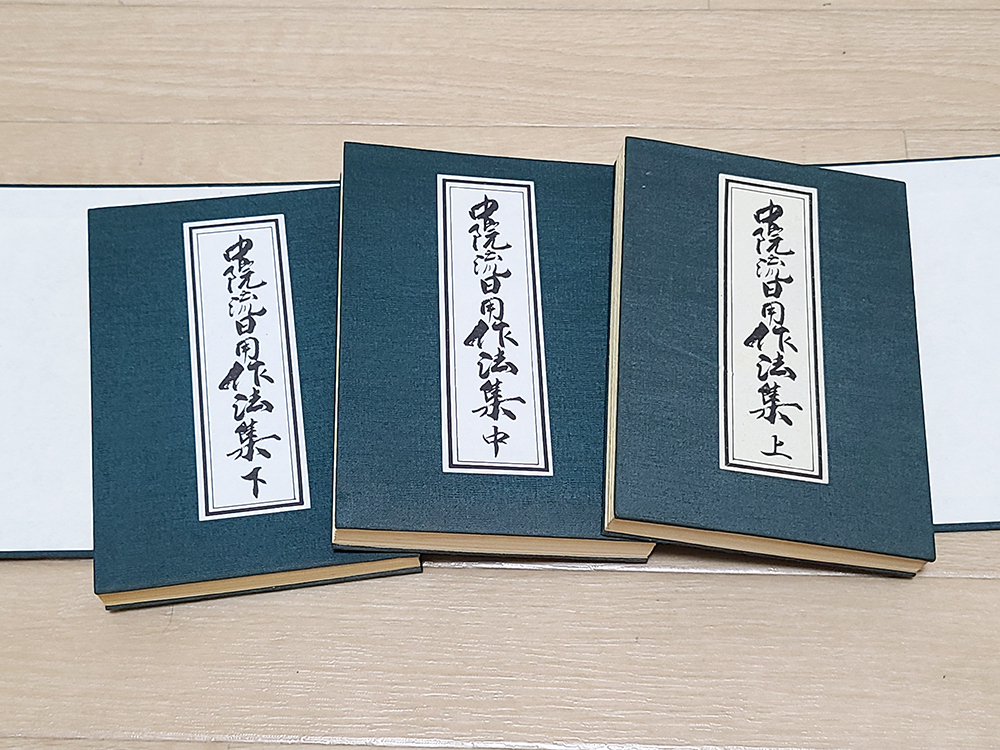 中院流日用作法集 上
中院流日用作法集 中
中院流日用作法集 下